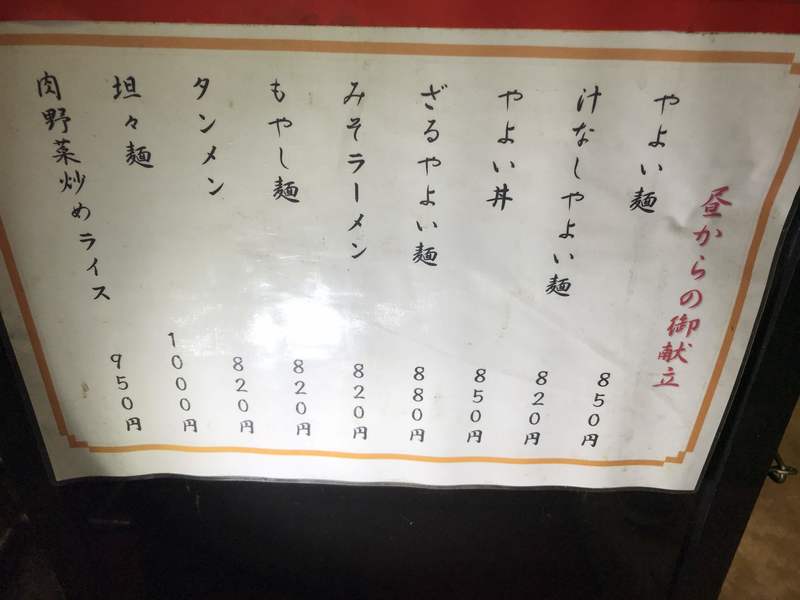 昼からの御献立
やよい麺 850円
汁なしやよい麺 820円
やよい丼 850円
ざるやよい麺 880円
みそラーメン 820円
もやし麺 820円
タンメン 820円
坦々麺 1000円
肉野菜炒めライス 950円